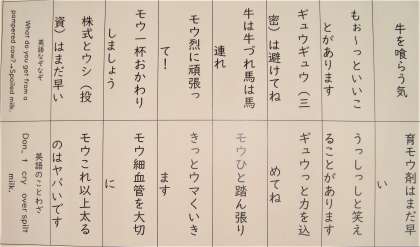 牛を喰らう気
もぉ~っといいこ
とがあります
ギュウギュウ（三
密）は避けてね
牛は牛づれ馬は馬
連れ
モウ烈に頑張っ
て！
モウ一杯おかわり
しましょう
株式とウシ（投
資）はまだ早い
英語なぞなぞ
What do you get from a
pampered cow?→Spoiled milk.
育モウ剤はまだ早
い
うっしっしと笑え
ることがあります
ギュウっと力を込
めてね
モウひと踏ん張り
きっとウマくいき
ます
モウ細血管を大切
に
モウこれ以上太る
のはヤバいです
英語のことわざ
Don't cry over spilt
milk.